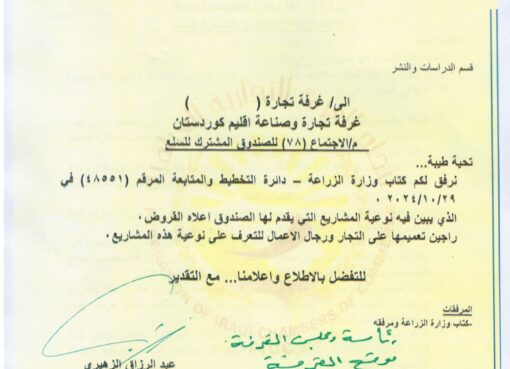 قسم الدراسات والنشر
الى/ غرفة تجارة ( )
غرفة تجارة وصناعة اقليم كوردستان
م/الاجتماع (٧٨) للصندوق المشترك للسلع
تحية طيبة...
نرفق لكم كتاب وزارة الزراعة – دائرة التخطيط والمتابعة المرقم (٤٨٥٥١) في
٢٠٢٤/١٠/٢٩ .
الذي يبين فيه نوعية المشاريع التي يقدم لها الصندوق اعلاه القروض.
راجين تعميمها على التجار ورجال الاعمال للتعرف على نوعية هذه المشاريع.
للتفضل بالاطلاع واعلامنا... مع التقدير
المرفقات
-كتاب وزارة الزراعة ومرفقه
عبد الرزاق الزهيري